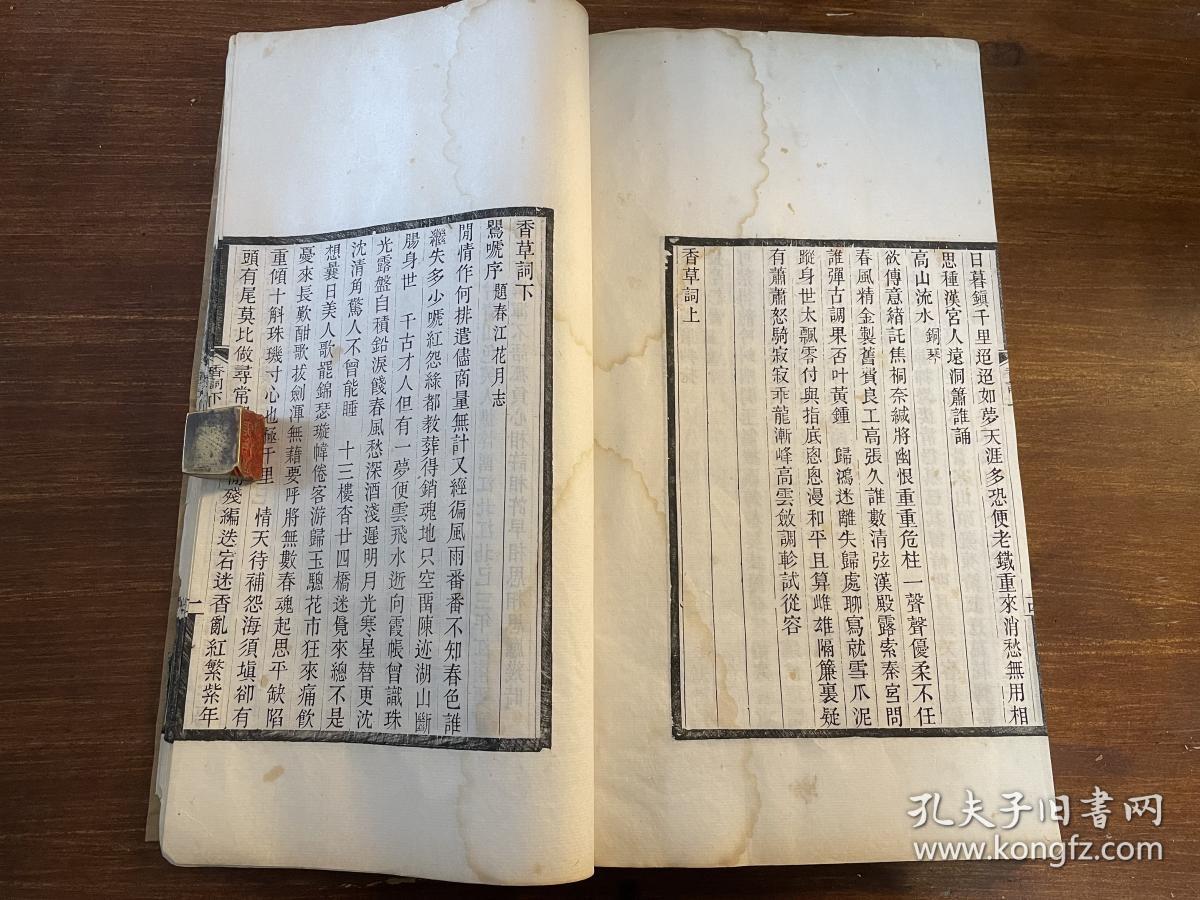 日暮鎮千里迢迢如夢天涯多恐便老鐵重來消愁無用相
思種漢宮人遠洞簫誰誦
高山流水 銅琴
欲傳意緒託焦桐奈緘將幽恨重重危柱一聲聲優柔不任
春風精金製舊費良工高張久誰數清弦漢殿露索秦宮問
誰彈古調果否叶黃鍾 歸鴻迷離失歸處聊寫就雪爪泥
蹤身世太飄零付與指底悤悤漫和平且算雌雄隔簾裏疑
有蕭蕭怒騎寂寂乖龍漸峰高雲斂調軫試從容
香草詞上
香草詞下
鶯嗁序 題春江花月志
閒情作何排遣儘商量無計又經徧風雨番番不知春色誰
繼失多少嗁紅怨綠都教葬得銷魂地只空畱陳迹湖山斷
腸身世 千古才人但有一夢便雲飛水逝向霞帳曾識珠
光露盤自積鉛淚餞春風愁深酒淺遲明月光寒星替更沈
沈清角驚人不曾能睡 十三樓杳廿四橋迷覺來總不是
想曩日美人歌罷錦瑟璇幃倦客游歸玉驄花市狂來痛飲
憂來長歎酣歌拔劍渾無藉要呼將無數春魂起思平缺陷
重傾十斛珠璣寸心也極千里 情天待補怨海須塡卻有
頭有尾莫比做尋常 殘編迷宕迷香亂紅繁紫年
香詞下
二
孔夫子旧书网
www.kongfz.com